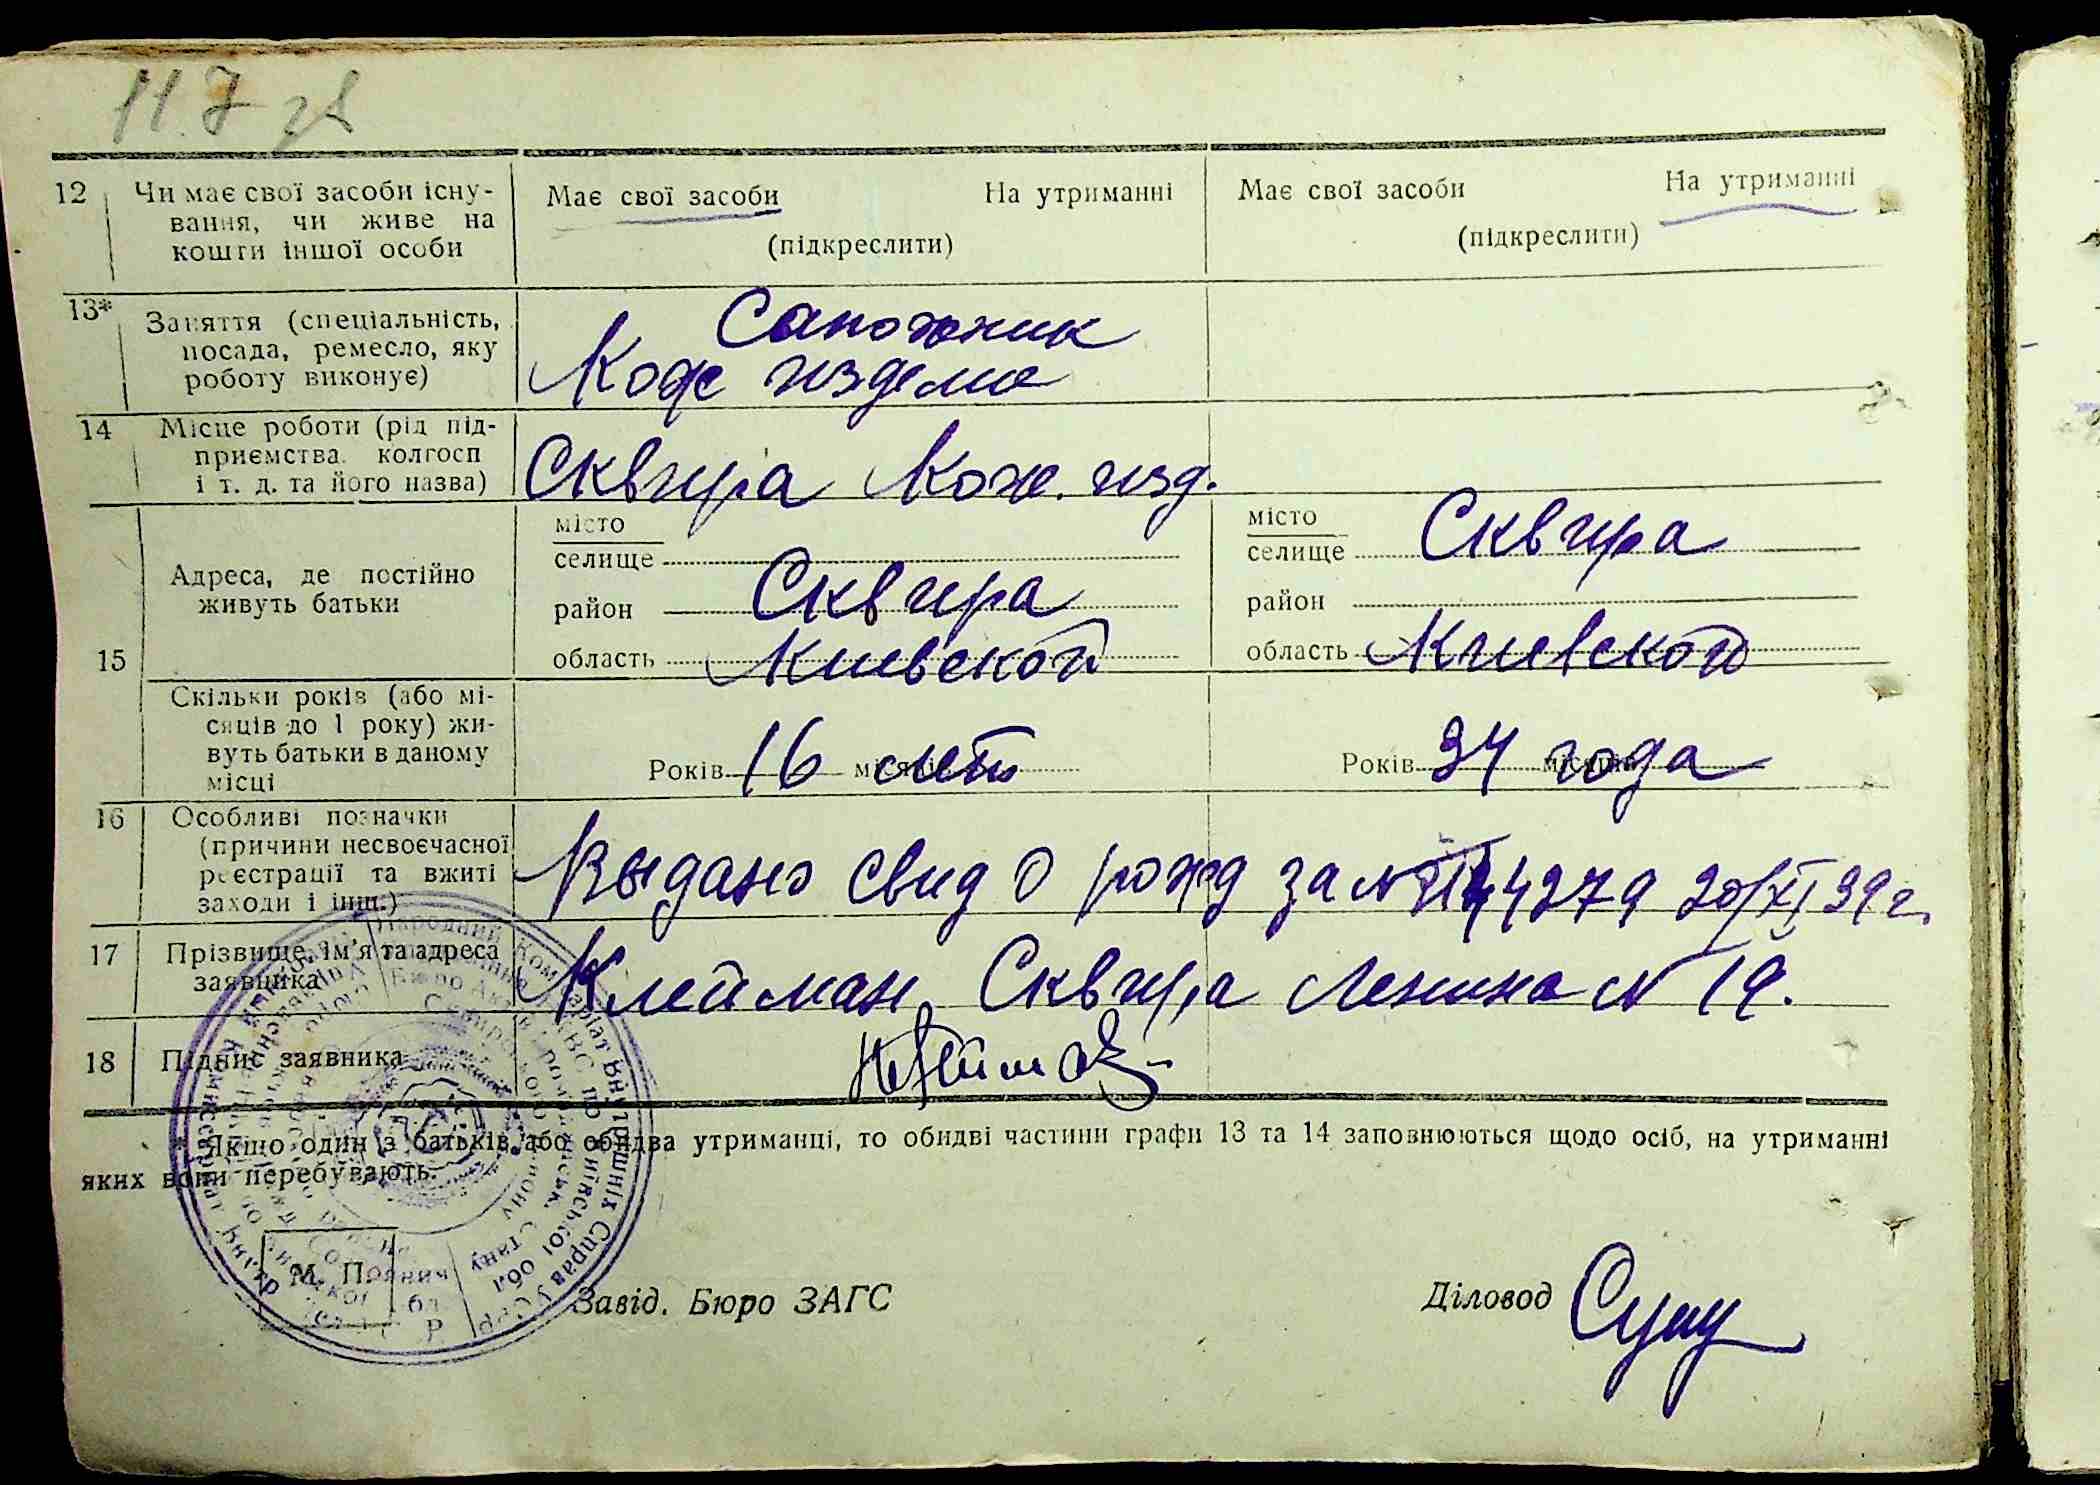 117 зв
12 Чи має свої засоби існу-
вання, чи живе на
кошти іншої особи
Має свої засоби На утриманні
(підкреслити)
Має свої засоби На утриманні
(підкреслити)
13* Заняття (спеціальність,
посада, ремесло, яку
роботу виконує)
Сапожник
Кож изделие
14 Місце роботи (рід під-
приємства, колгосп
і т. д. та його назва)
Сквира Кож. изд.
15 Адреса, де постійно
живуть батьки
місто
селище
район Сквира
область Киевской
місто
селище Сквира
район
область Киевской
Скільки років (або мі-
сяців до 1 року) жи-
вуть батьки в даному
місці
Років 16 лет
Років 34 года
16 Особливі позначки
(причини несвоєчасної
реєстрації та вжиті
заходи і інш.)
Выдано свид о рожд за № 4279 20/XI 39 г.
17 Прізвище, ім'я та адреса
заявника
Клейман, Сквира Ленина № 19.
18 Підпис заявника
* Якщо один з батьків, або обидва утриманці, то обидві частини графи 13 та 14 заповнюються щодо осіб, на утриманні
яких вони перебувають.
М. П.
Завід. Бюро ЗАГС
Діловод
Народний Комісаріат Внутрішніх Справ УСРР